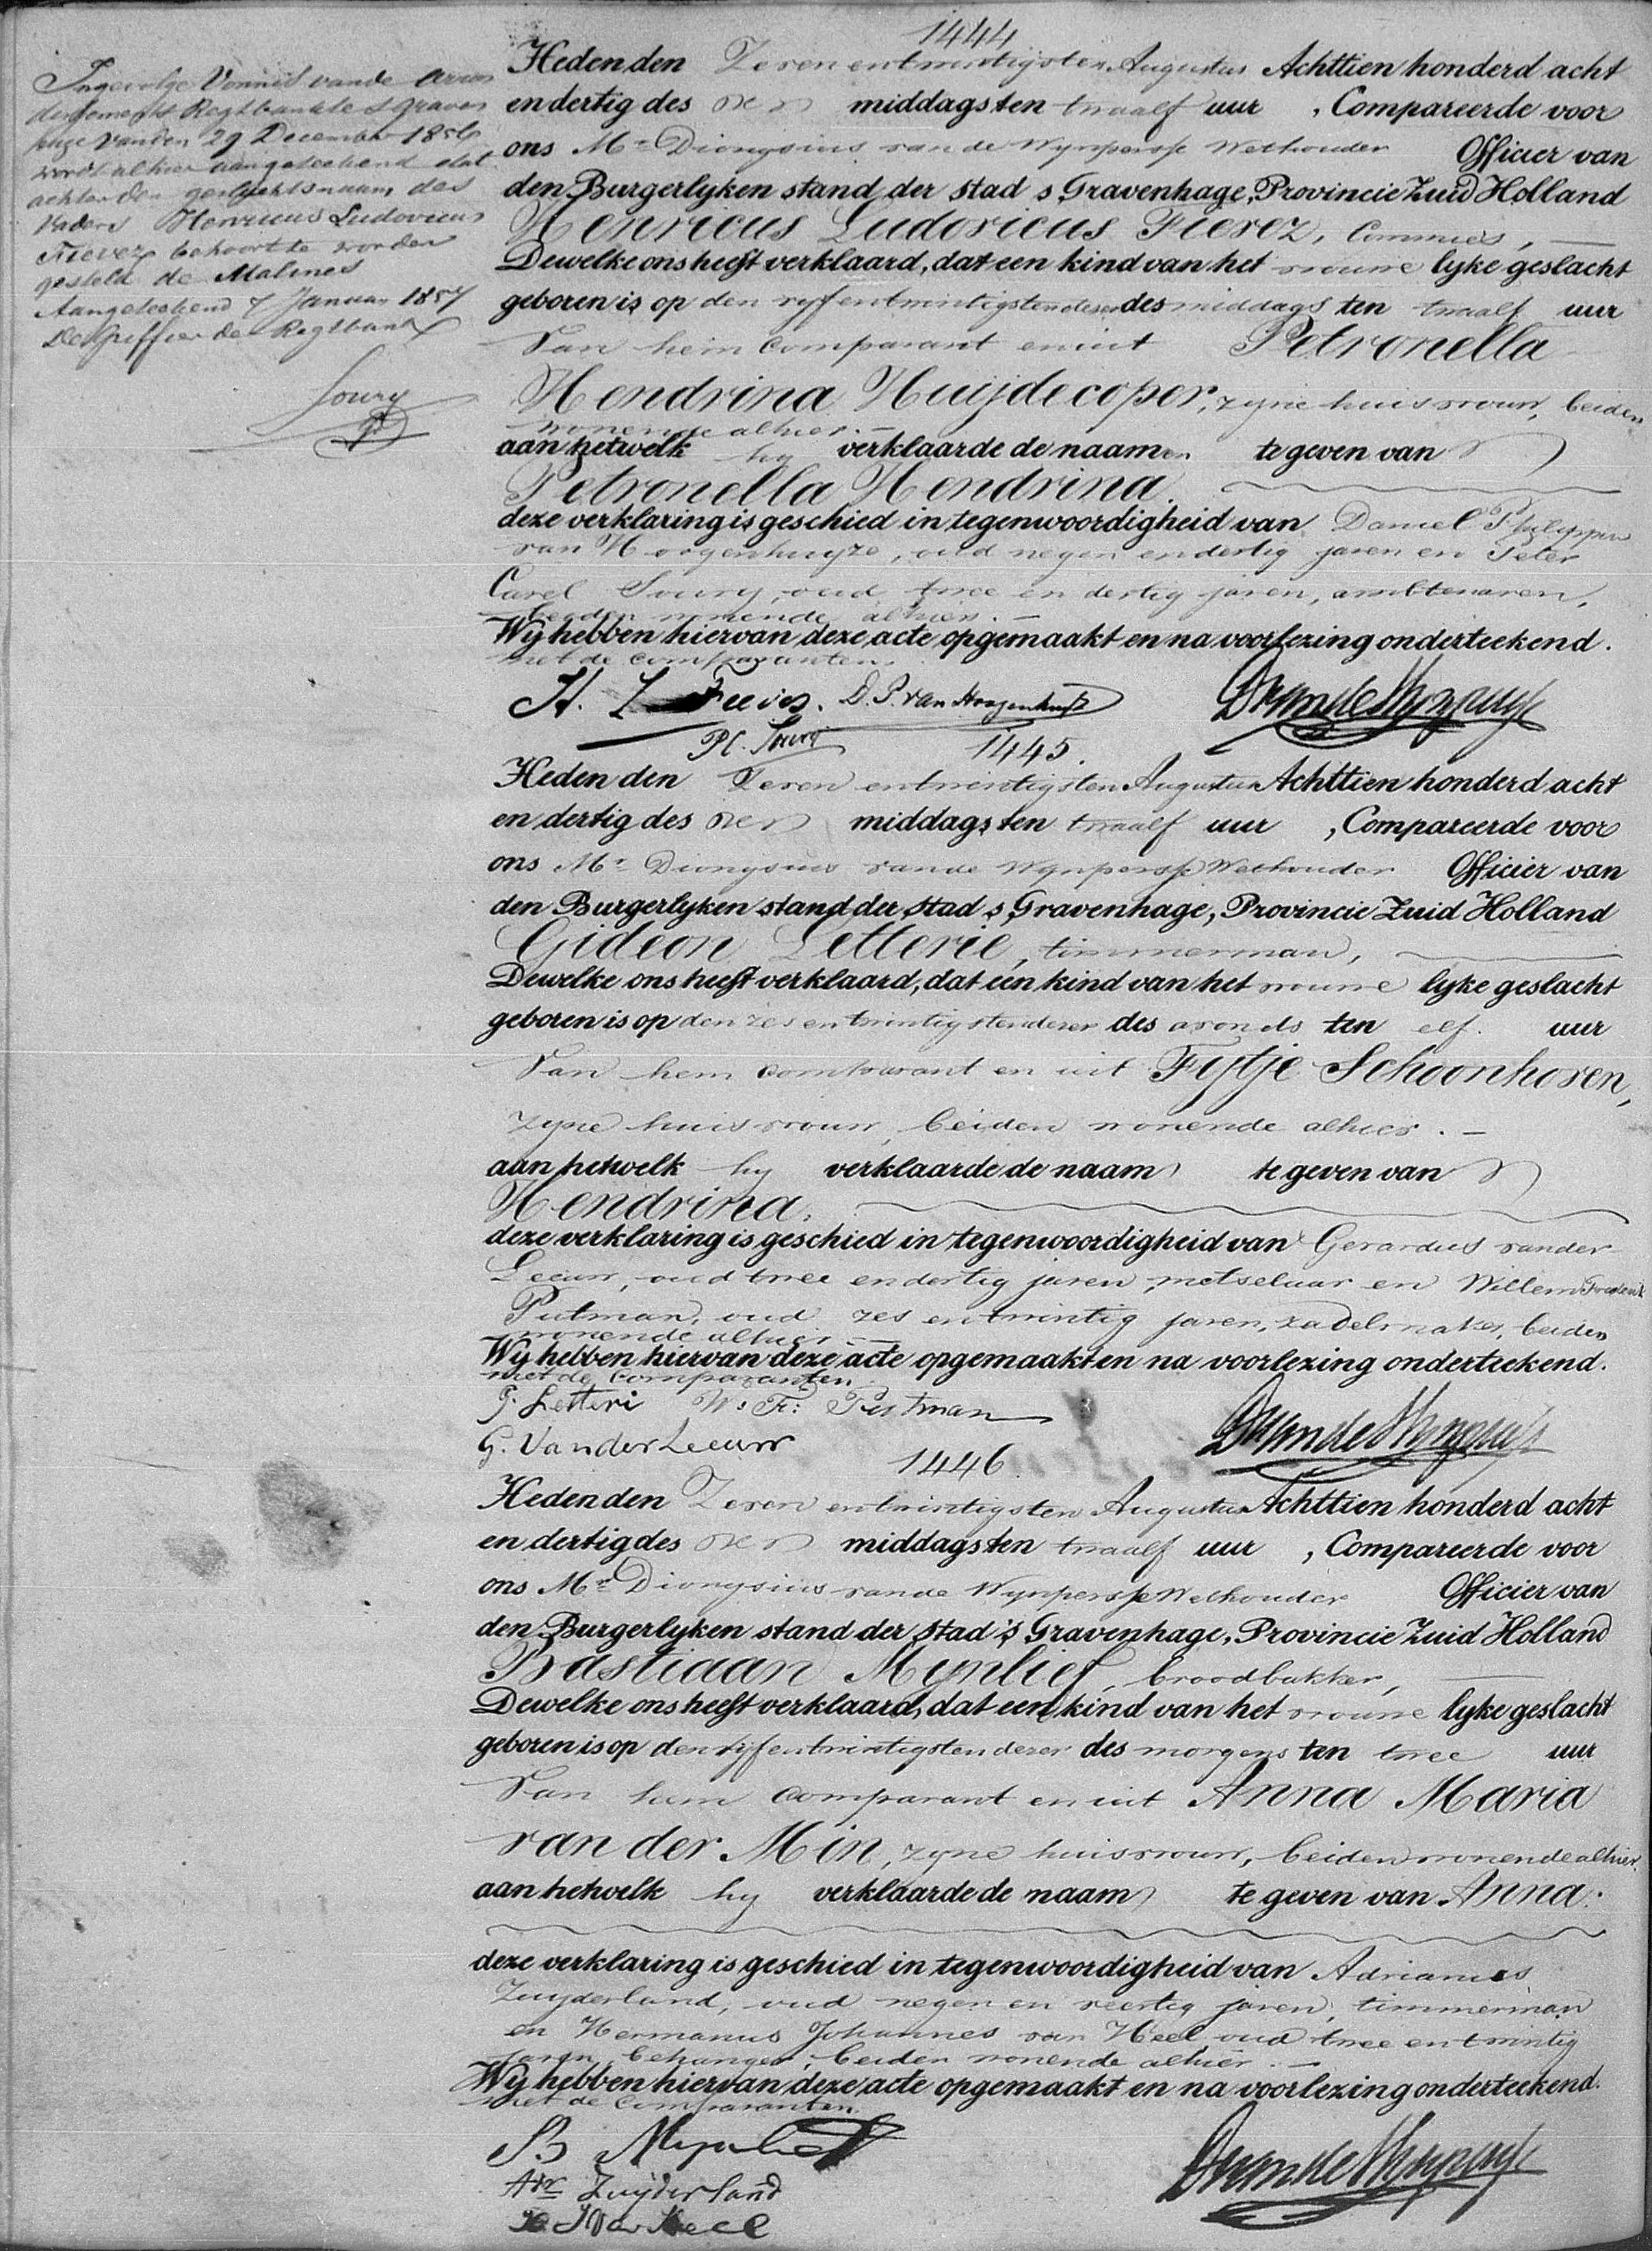 Ingevolge Vonnis van de Arron
dissements Regtbank te s Graven
hage van den 29 December 1856
wordt alhier aangeteekend dat
achter den geslachtsnaam des
Vaders Henricus Ludovicus
Fievez behoort te worden
gesteld de Malines
Aangeteekend 7 Januar 1857
De Griffier der Regtbank
Soury
1444
Heden den Zeven entwintigsten Augustus Achttien honderd acht
en dertig des voor middags ten twaalf uur , Compareerde voor
ons Mr Dionysius van de Wynpersse Wethouder Officier van
den Burgerlyken stand der stad s Gravenhage, Provincie Zuid Holland
Henricus Ludovicus Fievez, Commies,
Dewelke ons heeft verklaard, dat een kind van het vrouwe lyke geslacht
geboren is op den vyfentwintigsten dezer des middags ten twaalf uur
Van hem Comparant en uit Petronella
Hendrina Huijdecoper, zyne huisvrouw, beiden
wonende alhier. —
aan hetwelk hy verklaarde de naamen te geven van
Petronella Hendrina.
deze verklaring is geschied in tegenwoordigheid van Daniel Philippus
van Hoogenhuyze, oud negen en dertig jaren en Peter
Carel Soury, oud twee en dertig jaren, ambtenaren,
beiden wonende alhier. —
Wy hebben hiervan deze acte opgemaakt en na voorlezing onderteekend.
met de comparanten.
H. L. Fievez. D. P. van Hoogenhuyze
P.C. Soury
1445.
Heden den Zeven entwintigsten Augustus Achttien honderd acht
en dertig des voor middags ten twaalf uur , Compareerde voor
ons Mr Dionysius van de Wynpersse Wethouder Officier van
den Burgerlyken stand der stad s Gravenhage, Provincie Zuid Holland
Gideon Letterie, timmerman,
Dewelke ons heeft verklaard, dat een kind van het vrouwe lyke geslacht
geboren is op den zes entwintigsten dezer des avonds ten elf. uur
Van hem comparant en uit Fijtje Schoonhoven,
zyne huisvrouw, beiden wonende alhier. —
aan hetwelk hy verklaarde de naam te geven van
Hendrina.
deze verklaring is geschied in tegenwoordigheid van Gerardus vander
Leeuw, oud twee en dertig jaren, metselaar en Willem Frederik
Putman, oud zes entwintig jaren, zadelmaker, beiden
wonende alhier. —
Wy hebben hiervan deze acte opgemaakt en na voorlezing onderteekend.
met de comparanten.
G. Letteri W: Fr: Putman
G. Van der Leeuw
1446.
Heden den Zeven entwintigsten Augustus Achttien honderd acht
en dertig des voor middags ten twaalf uur , Compareerde voor
ons Mr Dionysius van de Wynpersse Wethouder Officier van
den Burgerlyken stand der stad 's Gravenhage, Provincie Zuid Holland
Bastiaan Mynlief, broodbakker,
Dewelke ons heeft verklaard, dat een kind van het vrouwe lyke geslacht
geboren is op den vyfentwintigsten dezer des morgens ten twee uur
Van hem Comparant en uit Anna Maria
van der Min, zyne huisvrouw, beiden wonende alhier.
aan hetwelk hy verklaarde de naam te geven van Anna.
deze verklaring is geschied in tegenwoordigheid van Adrianus
Zuyderland, oud negen en veertig jaren, timmerman
en Hermanus Johannes van Heel, oud twee entwintig
jaren, behanger, beiden wonende alhier. —
Wy hebben hiervan deze acte opgemaakt en na voorlezing onderteekend.
met de comparanten.
B Mynlief
Adr Zuyderland
H J Van Heel